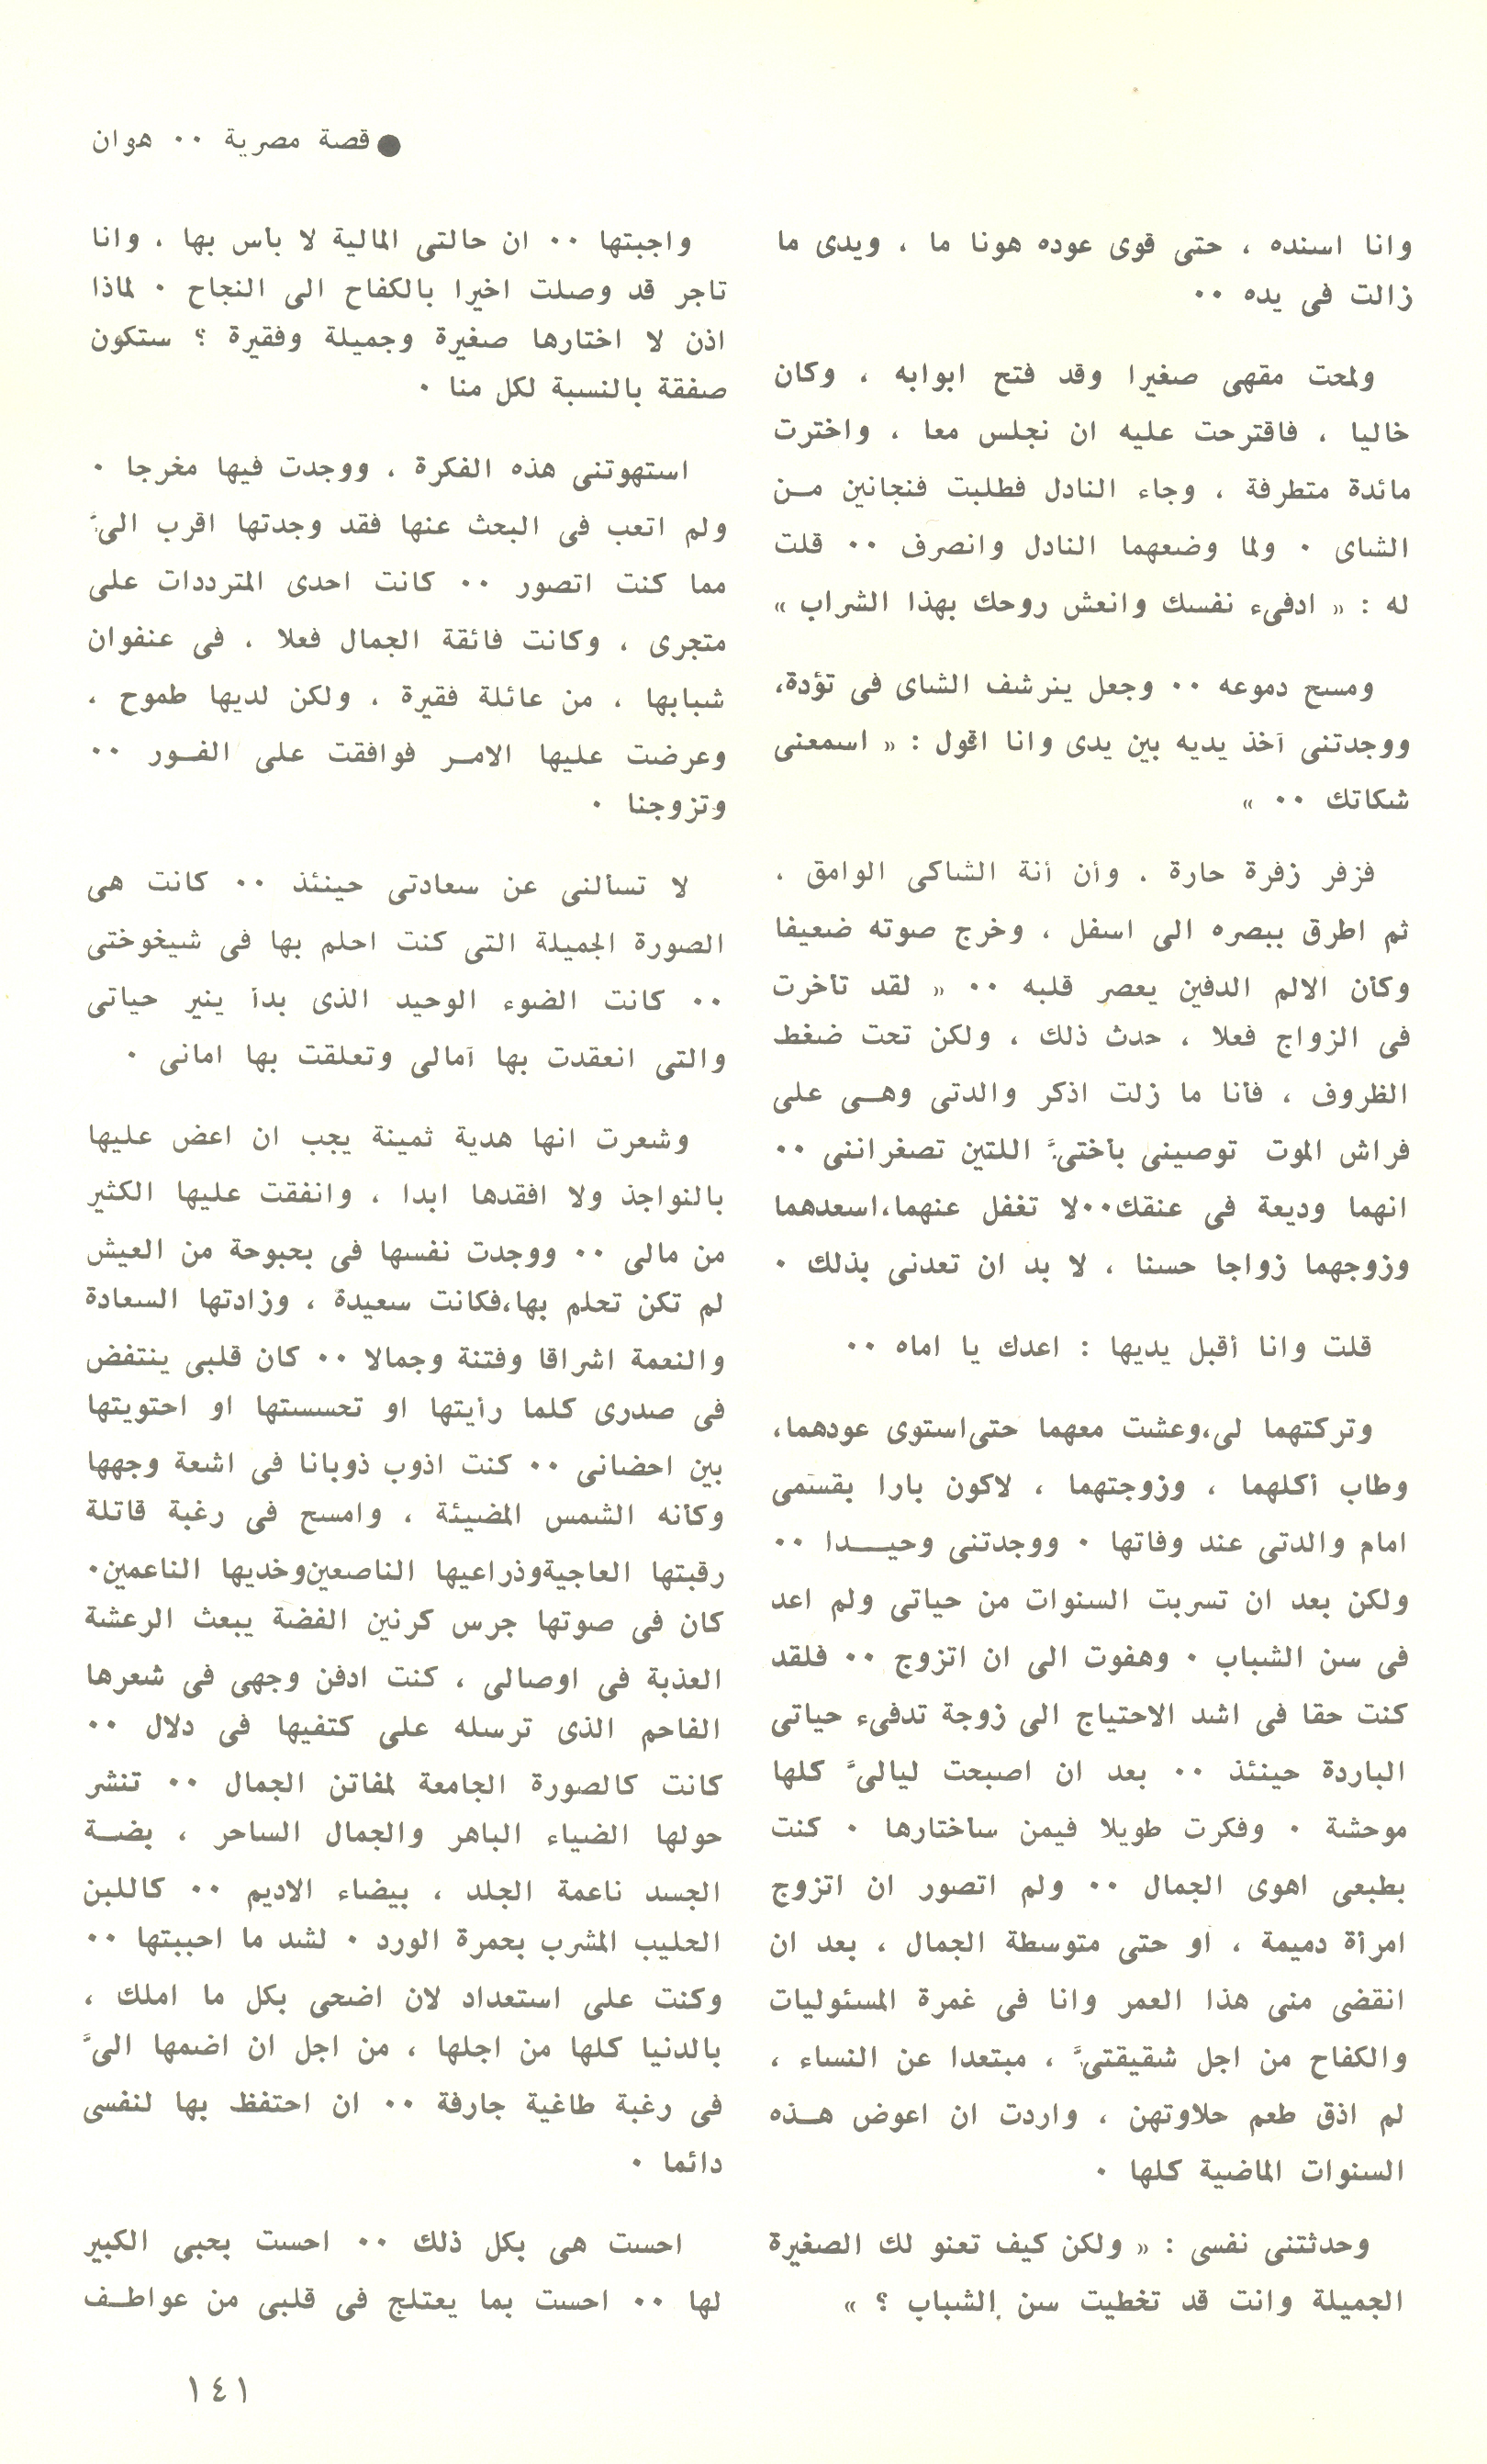 ● قصة مصرية ٠٠ هوان
وانا اسنده ، حتى قوى عوده هونا ما ، ويدى ما
زالت فى يده ٠٠
ولمحت مقهى صغيرا وقد فتح ابوابه ، وكان
خاليا ، فاقترحت عليه ان نجلس معا ، واخترت
مائدة متطرفة ، وجاء النادل فطلبت فنجانين مـن
الشاى ٠ ولما وضعهما النادل وانصرف ٠٠ قلت
له : « ادفىء نفسك وانعش روحك بهذا الشراب »
ومسح دموعه ٠٠ وجعل يترشف الشاى فى تؤدة،
ووجدتنى آخذ يديه بين يدى وانا اقول : « اسمعنى
شكاتك ٠٠ »
فزفر زفرة حارة . وأن أنة الشاكى الوامق ،
ثم اطرق ببصره الى اسفل ، وخرج صوته ضعيفا
وكأن الالم الدفين يعصر قلبه ٠٠ « لقد تأخرت
فى الزواج فعلا ، حدث ذلك ، ولكن تحت ضغط
الظروف ، فأنا ما زلت اذكر والدتى وهـى على
فراش الموت توصينى بأختىَّ اللتين تصغراننى ٠٠
انهما وديعة فى عنقك٠٠لا تغفل عنهما،اسعدهما
وزوجهما زواجا حسنا ، لا بد ان تعدنى بذلك ٠
قلت وانا أقبل يديها : اعدك يا اماه ٠٠
وتركتهما لى،وعشت معهما حتى استوى عودهما،
وطاب أكلهما ، وزوجتهما ، لاكون بارا بقسمى
امام والدتى عند وفاتها ٠ ووجدتنى وحيـــدا ٠٠
ولكن بعد ان تسربت السنوات من حياتى ولم اعد
فى سن الشباب ٠ وهفوت الى ان اتزوج ٠٠ فلقد
كنت حقا فى اشد الاحتياج الى زوجة تدفىء حياتى
الباردة حينئذ ٠٠ بعد ان اصبحت ليالىَّ كلها
موحشة ٠ وفكرت طويلا فيمن سأختارها ٠ كنت
بطبعى اهوى الجمال ٠٠ ولم اتصور ان اتزوج
امرأة دميمة ، أو حتى متوسطة الجمال ، بعد ان
انقضى منى هذا العمر وانا فى غمرة المسئوليات
والكفاح من اجل شقيقتىَّ ، مبتعدا عن النساء ،
لم اذق طعم حلاوتهن ، واردت ان اعوض هـذه
السنوات الماضية كلها ٠
وحدثتنى نفسى : « ولكن كيف تعنو لك الصغيرة
الجميلة وانت قد تخطيت سن الشباب ؟ »
واجبتها ٠٠ ان حالتى المالية لا بأس بها ، وانا
تاجر قد وصلت اخيرا بالكفاح الى النجاح ٠ لماذا
اذن لا اختارها صغيرة وجميلة وفقيرة ؟ ستكون
صفقة بالنسبة لكل منا ٠
استهوتنى هذه الفكرة ، ووجدت فيها مخرجا ٠
ولم اتعب فى البحث عنها فقد وجدتها اقرب الىَّ
مما كنت اتصور ٠٠ كانت احدى المترددات على
متجرى ، وكانت فائقة الجمال فعلا ، فى عنفوان
شبابها ، من عائلة فقيرة ، ولكن لديها طموح ،
وعرضت عليها الامـر فوافقت على الفـور ٠٠
وتزوجنا ٠
لا تسألنى عن سعادتى حينئذ ٠٠ كانت هى
الصورة الجميلة التى كنت احلم بها فى شيخوختى
٠٠ كانت الضوء الوحيد الذى بدأ ينير حياتى
والتى انعقدت بها آمالى وتعلقت بها امانى ٠
وشعرت انها هدية ثمينة يجب ان اعض عليها
بالنواجذ ولا افقدها ابدا ، وانفقت عليها الكثير
من مالى ٠٠ ووجدت نفسها فى بحبوحة من العيش
لم تكن تحلم بها،فكانت سعيدة ، وزادتها السعادة
والنعمة اشراقا وفتنة وجمالا ٠٠ كان قلبى ينتفض
فى صدرى كلما رأيتها او تحسستها او احتويتها
بين احضانى ٠٠ كنت اذوب ذوبانا فى اشعة وجهها
وكأنه الشمس المضيئة ، وامسح فى رغبة قاتلة
رقبتها العاجيةوذراعيها الناصعين‌وخديها الناعمين٠
كان فى صوتها جرس كرنين الفضة يبعث الرعشة
العذبة فى اوصالى ، كنت ادفن وجهى فى شعرها
الفاحم الذى ترسله على كتفيها فى دلال ٠٠
كانت كالصورة الجامعة لمفاتن الجمال ٠٠ تنشر
حولها الضياء الباهر والجمال الساحر ، بضـة
الجسد ناعمة الجلد ، بيضاء الاديم ٠٠ كاللبن
الحليب المشرب بحمرة الورد ٠ لشد ما احببتها ٠٠
وكنت على استعداد لان اضحى بكل ما املك ،
بالدنيا كلها من اجلها ، من اجل ان اضمها الىَّ
فى رغبة طاغية جارفة ٠٠ ان احتفظ بها لنفسى
دائما ٠
احست هى بكل ذلك ٠٠ احست بحبى الكبير
لها ٠٠ احست بما يعتلج فى قلبى من عواطـف
١٤١